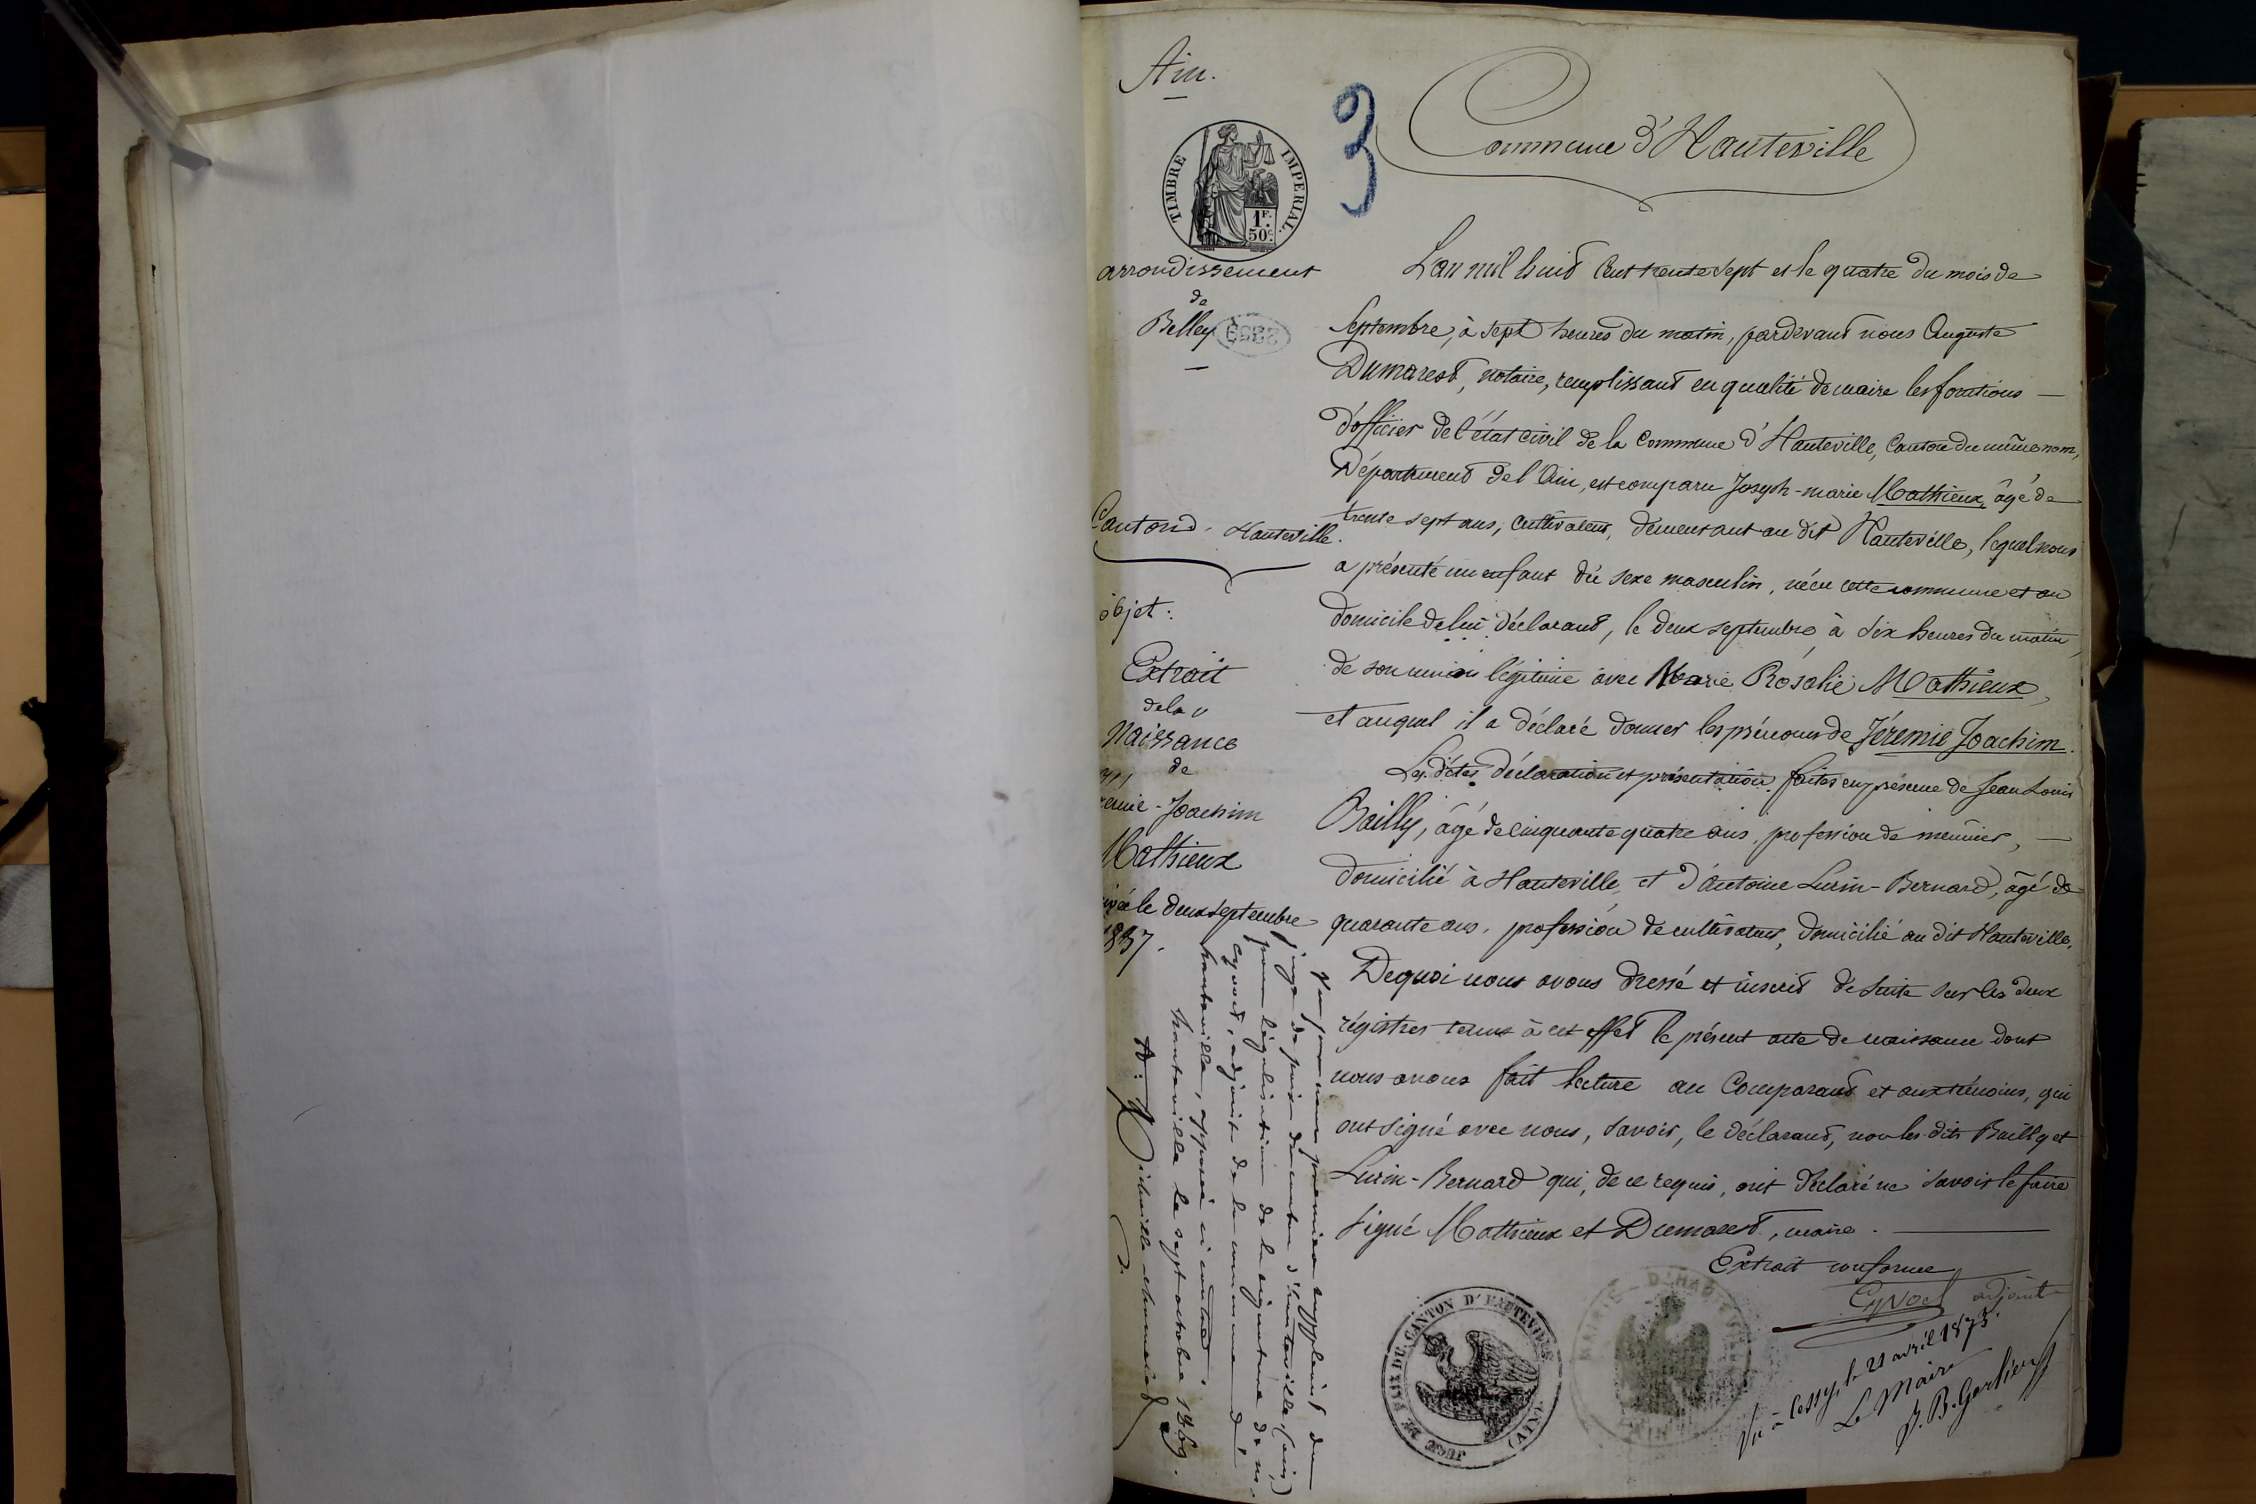 Ain.
TIMBRE IMPERIAL.
1F.
50c.
3
Commune d'Hauteville
arrondissement
de
Belley
Canton d'Hauteville.
objet:
Extrait
de la
Naissance
de
Joachim
Mathieux
le deux septembre
1837.
L'an mil huit cent trente sept et le quatre du mois de
Septembre, à sept heures du matin, pardevant nous Auguste
Dumarest, notaire, remplissant en qualité de maire les fonctions
d'officier de l'état civil de la commune d'Hauteville, Canton du même nom,
Département de l'Ain, est comparu Joseph-marie Mathieux, âgé de
trente sept ans, cultivateur, demeurant au dit Hauteville, lequel nous
a présenté un enfant du sexe masculin, né en cette commune et au
domicile de lui déclarant, le deux septembre, à six heures du matin,
de son union légitime avec Marie Rosalie Mathieux,
et auquel il a déclaré donner les prénoms de Jérémie Joachim.
Les dites déclaration et présentation faites en présence de Jean Louis
Bailly, âgé de cinquante quatre ans, profession de meunier,
domicilié à Hauteville, et d'Antoine Lurin-Bernard, âgé de
quarante ans, profession de cultivateur, domicilié au dit Hauteville.
De quoi nous avons dressé et inscrit de suite sur les deux
régistres tenus à cet effet le présent acte de naissance dont
nous avons fait lecture au Comparant et aux témoins, qui
ont signé avec nous, savoir, le déclarant, non les dits Bailly et
Lurin-Bernard qui, de ce requis, ont déclaré ne savoir le faire
Signé Mathieux et Dumarest, maire.
Extrait conforme
adjoint
Vu à Cessy, le 21 avril 1873.
Le Maire
J. B. Gerlier
Vu par nous premier suppléant du
juge de paix du canton d'hauteville, (ain)
pour légalisation de la signature de m.
adjoint de la commune d'
hauteville, apposée ci contre.
hauteville le sept octobre 1869.
JUGE DE PAIX DU CANTON D'HAUTEVILLE
(AIN)
MAIRIE D'HAUTEVILLE